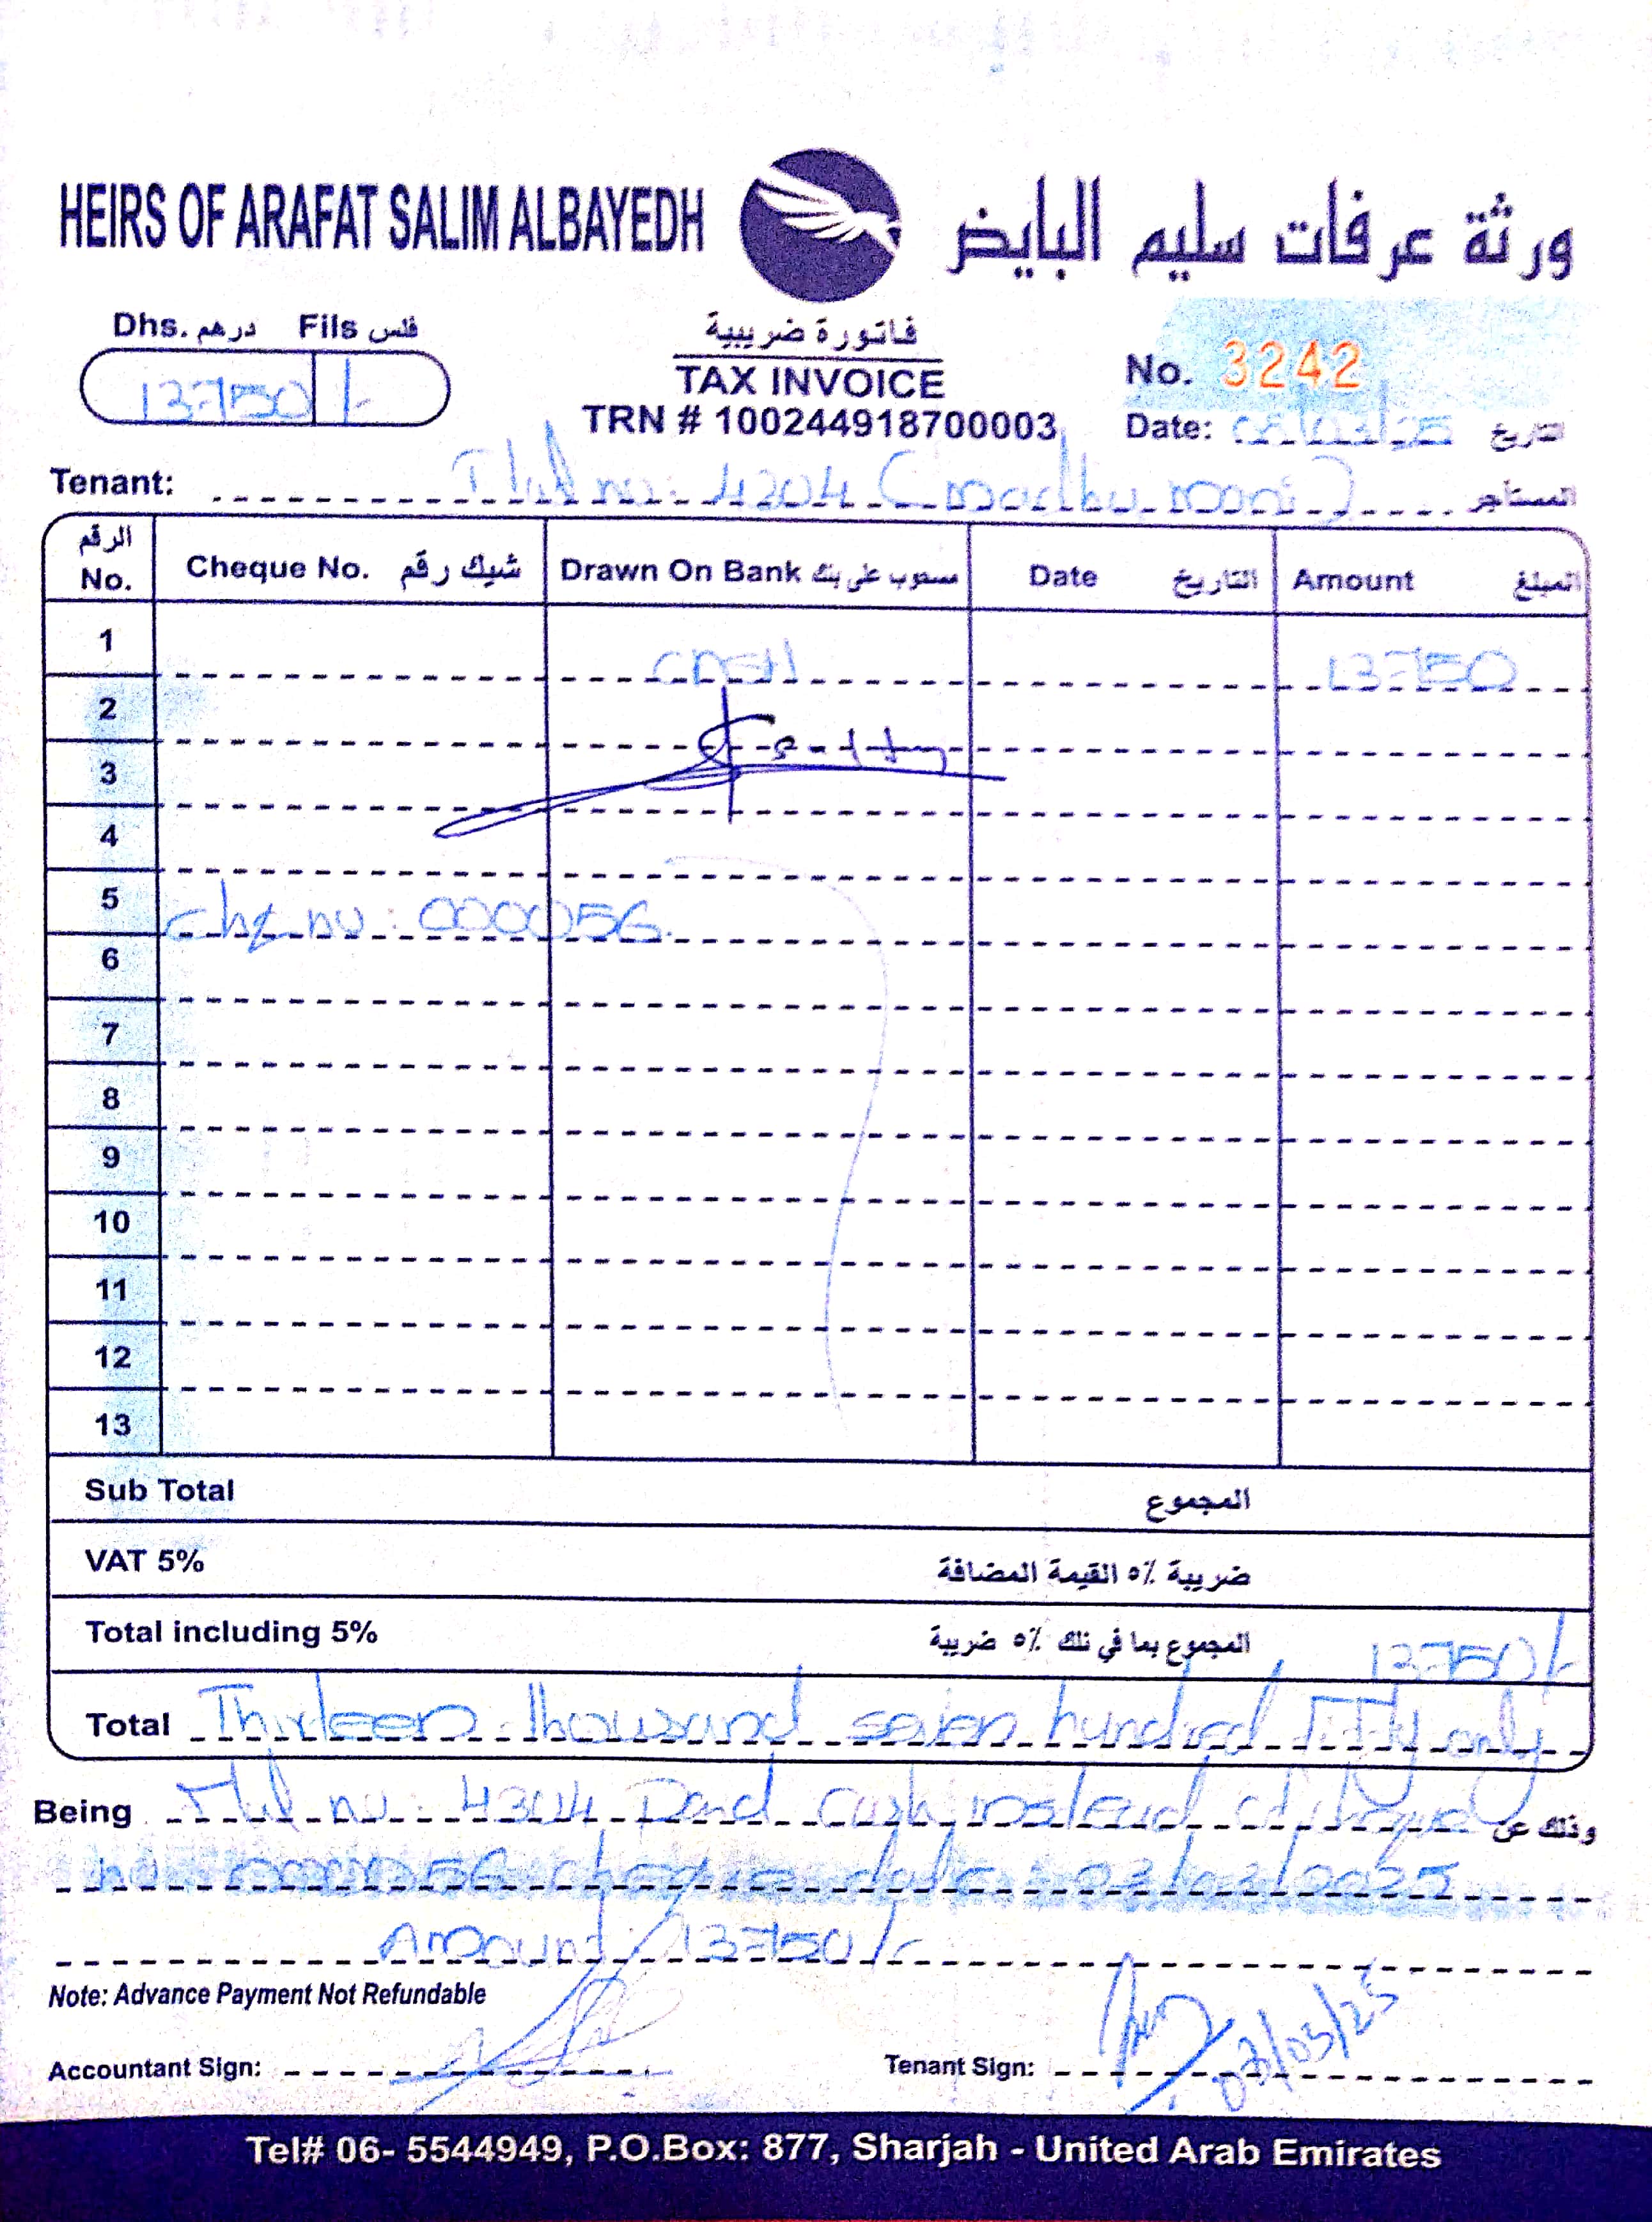 HEIRS OF ARAFAT SALIM ALBAYEDH ورثة عرفات سليم البايض
Dhs. درهم Fils فلس
13750 /-
فاتورة ضريبية
TAX INVOICE
TRN # 100244918700003
No. 3242
Date: /03/25 التاريخ
Tenant: Flat no: 4304 (madhu mani) المستأجر
الرقم No. Cheque No. شيك رقم Drawn On Bank مسحوب على بنك Date التاريخ Amount المبلغ
1 CASH 13750
2
3
4
5 chq no: 000056
6
7
8
9
10
11
12
13
Sub Total المجموع
VAT 5% ضريبة ٥٪ القيمة المضافة
Total including 5% المجموع بما في ذلك ٥٪ ضريبة 13750/-
Total Thirteen thousand seven hundred Fifty only
Being Flat no: 4304 Paid Cash instead of cheque وذلك عن
no 000056 cheque date: 03/03/2025
Amount 13750/-
Note: Advance Payment Not Refundable
Accountant Sign: Tenant Sign: /03/25
Tel# 06- 5544949, P.O.Box: 877, Sharjah - United Arab Emirates